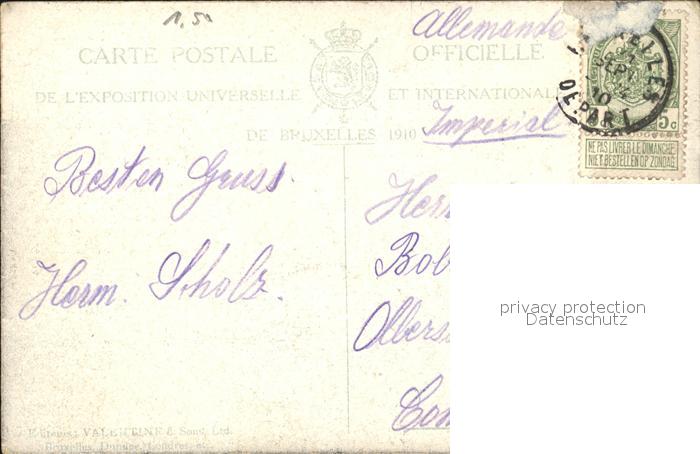 1.50
Allemande
CARTE POSTALE OFFICIELLE
DE L'EXPOSITION UNIVERSELLE ET INTERNATIONALE
DE BRUXELLES 1910
Imperial
ELLES
SEPT
10
DEPART
5c
NE PAS LIVRER LE DIMANCHE
NIET BESTELLEN OP ZONDAG
Besten Gruss.
Herm. Scholz.
Her
Bol
Olbers
privacy protection
Datenschutz
Editeurs: VALENTINE & Sons, Ltd.
Bruxelles, Dundee, Londres,